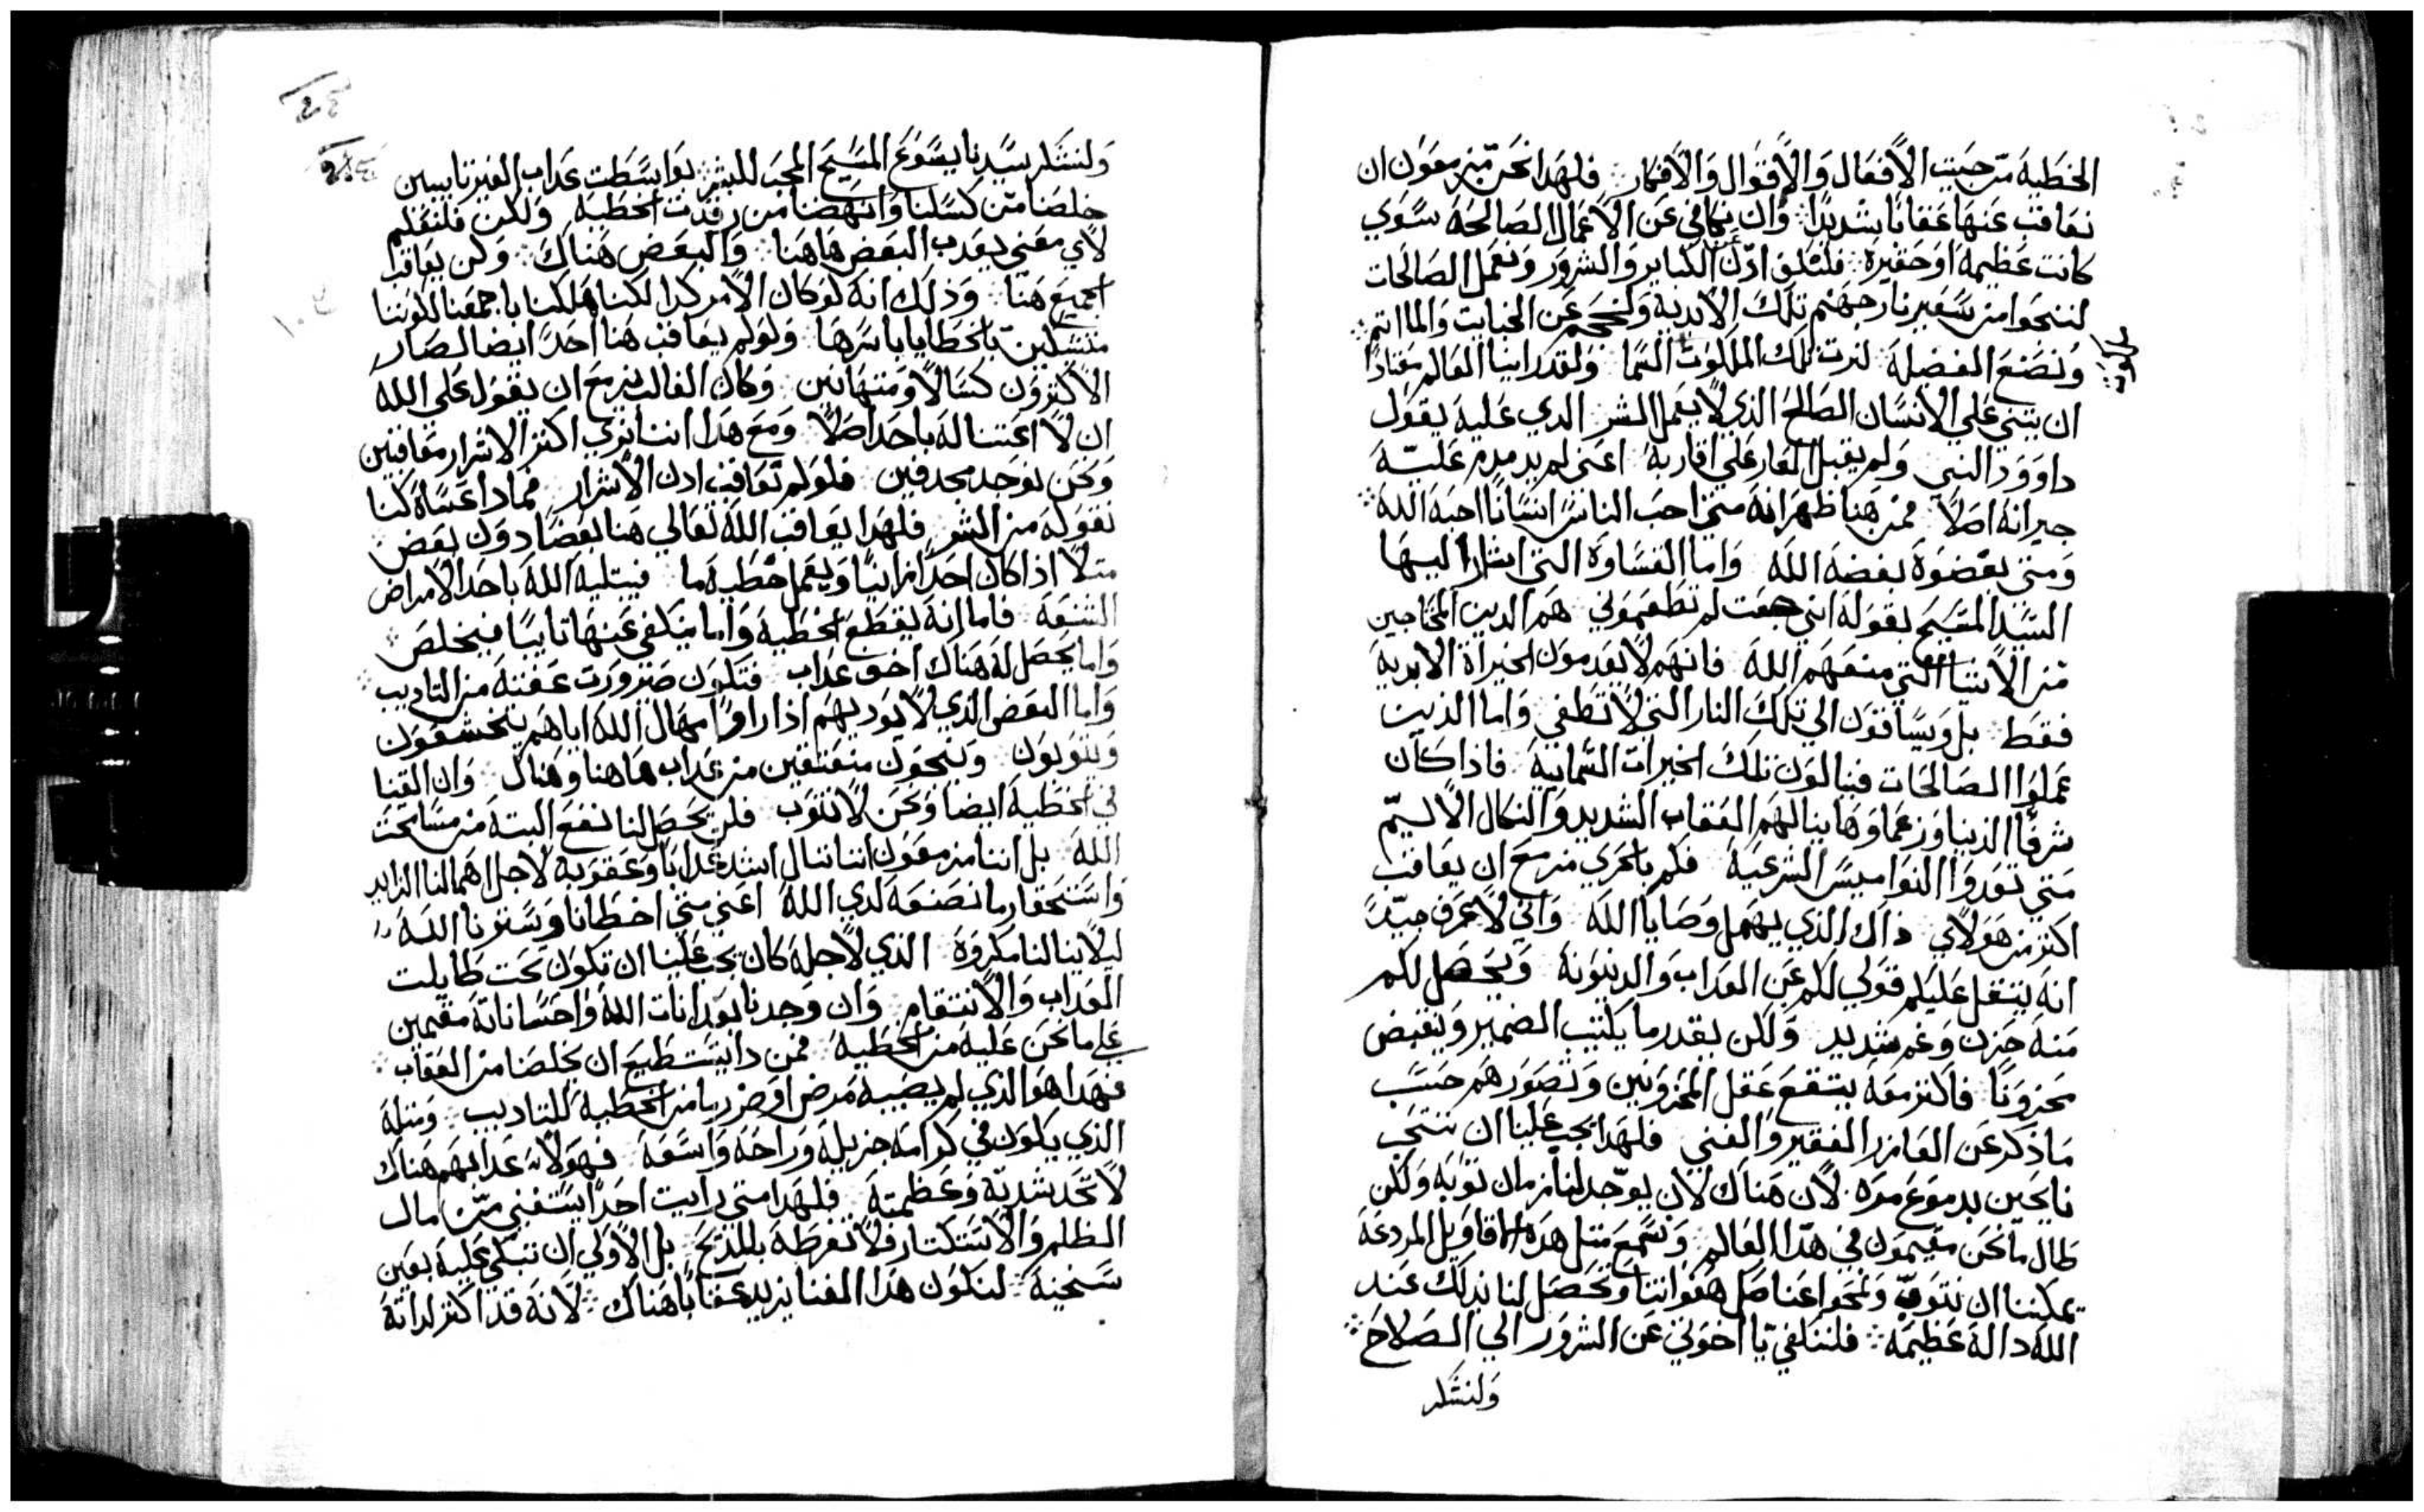 الخطية من جيت الأفعال والأقوال والأفكار فلهدا نحن مزمعون ان
نعاقب عنها عقابا شديدا وان نكافي عن الأعمال الصالحة سوي
كانت عظيمة او حقيرة فلنلق ادن الكباير والشرور ونعمل الصالحات
لننجوا من سعير نار جهنم تلك الابدية ولنحجم عن الخبايت والماا تم
ونصنع الفضيلة لنرت تلك الملكوت السما ولقد راينا العالم معتادا
ملكوت
ان يتني علي الأنسان الصالح الذي لا يعمل الشر الدي عليه يقول
داوود النبي ولم يقبل العار علي اقاربه اعني لم يدمدم عليه
جيرانه اصلا فمن هنا ظهر انه متي احب الناس انسانا احبه الله
ومتي بغضوه بغضه الله واما القساوة التي اشار اليها
السيد المسيح بقوله انني جعت لم تطعموني هم الدين المحتاجين
من الأشيا التي منعهم الله فانهم لا يعدمون الخيراة الابدية
فقط بل ويساقون الي تلك النار التي لا تطفي واما الذين
عملوا الصالحات فينالون تلك الخيرات السمائية فاذا كان
شرفا الدنيا وزعماوها ينالهم العقاب الشديد والنكال الأليم
متي تعدوا النواميس الشرعية فكم بالحري مزمع ان يعاقب
اكتر من هولاي ذاك الذي يهمل وصايا الله واني لأعرف جيدا
انه يتقل عليكم قولي لكم عن العداب والدينونة ويحصل لكم
منه حزن وغم شديد ولكن بقدر ما يكتيب الضمير وينقبض
محزونا فاكتر معه ينتفع عقل المحزونين وتصورهم حسب
ما ذكر عن العازر الفقير والغني فلهدا يجب علينا ان ننتحب
نايحين بدموع مره لأن هناك لان يوجد لنا زمان توبه ولكن
طال ما نحن مقيمون في هدا العالم وتسمع متل هده الاقاويل المردعة
يمكننا ان نتوب ونمحوا عنا كل هفواتنا وتحصل لنا بدلك عند
الله دالة عظيمة فلننكفي يا اخوتي عن الشرور الي الصلاح
ولنشكر
ولنشكر سيدنا يسوع المسيح المحب للبشر بواسطت عداب الغير تايبين
خلصنا من كسلنا وانهضنا من رقدت الخطية ولكن فلنعلم
لاي معني يعدب البعض هاهنا والبعض هناك ولكن يعاقبا
الجميع هنا وذلك انه لو كان الأمر كدا لكنا هلكنا باجمعنا لكوننا
متسكلين بالخطايا باسرها ولو لم يعاقب هنا احدا ايضا لصار
الأكترون كسالا ومتهانين وكان الغالب مزمع ان يقول علي الله
ان لا اعتنا له باحد اصلا ومع هدا اننا نري اكتر الاشرار معاقبين
ونحن نوجد مجدفين فلو لم تعاقب ادن الأشرار فمادا عساه كنا
نقوله من الشر فلهدا يعاقب الله تعالي هنا بعضا دون بعض
متلا اذا كان احدا زانيا ويعمل خطية ما فيبتليه الله باحد الأمراض
الشنعة فاما انه يقطع الخطية واما ينكفي عنها تايبا فيخلص
واما يحصل له هناك اخف عداب فتكون ضرورت عفتة من التاديب
واما البعض الذي لا يوديهم اذا راوا امهال الله اياهم يتخشعون
ويتوبون وينجون منعتقين من عداب هاهنا وهناك وان القينا
في الخطية ايضا ونحن لا نتوب فلن يحصل لنا نفع البتة من مسامحت
الله بل اننا مزمعون اننا ننال اشد عدابا وعقوبة لاجل اهمالنا الزايد
واستحقار ما نصنعه لدي الله اعني متي اخطانا ويسترنا الله
ليلا ينالنا مكروه الذي لأجله كان يجب علينا ان نكون تحت طايلت
العداب والأنتقام وان وجدنا بعد انات الله واحساناته مقيمين
علي ما نحن عليه من الخطية فمن دا يستطيع ان يخلصنا من العقاب
فهدا هو الذي لم يصيبه مرض او ضرر ما من الخطية للتاديب ومتله
الذي يكون في كرامه جزيلة وراحة واسعة فهولاء عدابهم هناك
لا تحد شدته وعظمته فلهدا متي رايت احدا يستغني من مال
الظلم والاستكتار فلا تغرطه بالمديح بل الأولي ان تبكي عليه بعين
سخينة لتكون هدا الغنا يزيد عقابا هناك لانه قد اكتر لداته